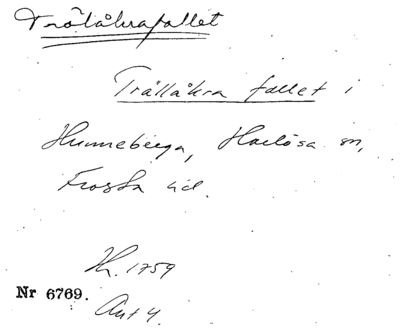 Trålåkrafallet
Trållåkra fallet i
Hunneberga, Harlösa sn,
Frosta hd.
Kr. 1759
Nr 6769.
Ant 4.